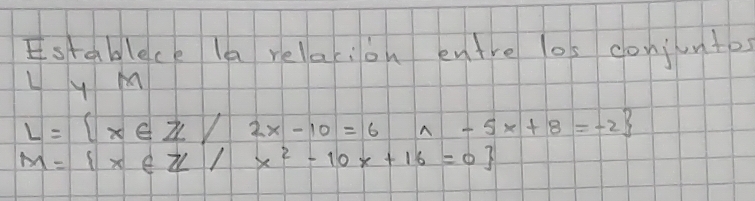 Establece la relación entre los conjuntos
L y M
L = { x ∈ ℤ / 2x - 10 = 6 ∧ - 5x + 8 = -2}
M = { x ∈ ℤ / x² - 10x + 16 = 0}